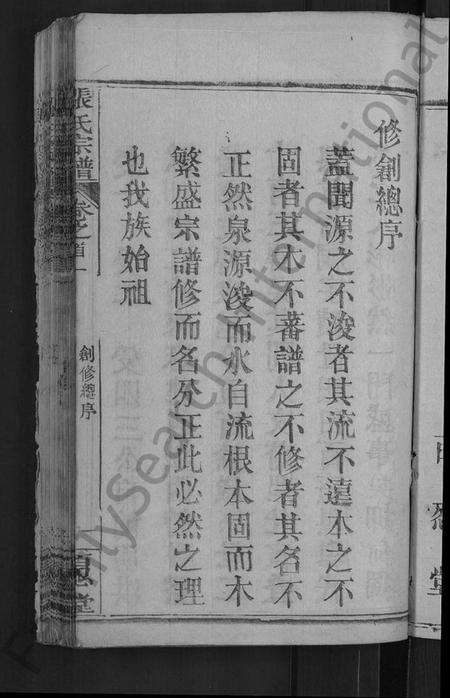 修創總序
蓋聞源之不浚者其流不遠木之不
固者其木不蕃譜之不修者其名不
正然泉源浚而水自流根本固而木
繁盛宗譜修而名分正此必然之理
也我族始祖
張氏宗譜
卷之首
創修總序
堂
堂
FamilySearch International